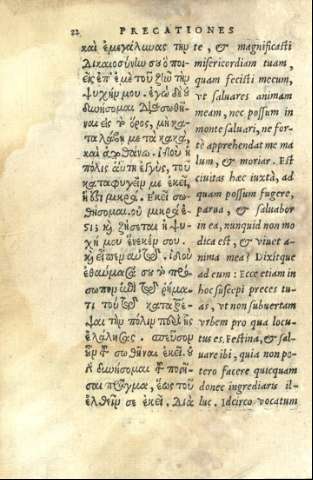 22 PRECATIONES
καὶ ἐμεγάλυνας τὴν
δικαιοσύνην σου ὃ ποι-
εῖς ἐπ' ἐμὲ τοῦ ζῆν τὴν
ψυχήν μου. ἐγὼ δὲ οὐ
δυνήσομαι διασωθῆ-
ναι εἰς τὸ ὄρος, μὴ κα-
ταλάβῃ με τὰ κακὰ,
καὶ ἀποθάνω. ἰδοὺ ἡ
πόλις αὕτη ἐγγὺς, τοῦ
καταφυγεῖν με ἐκεῖ,
ἥ ἐστι μικρά. ἐκεῖ σω-
θήσομαι. οὐ μικρά ἐ-
στι καὶ ζήσεται ἡ ψυ-
χή μου ἕνεκέν σου.
καὶ εἶπεν αὐτῷ. ἰδοὺ
ἐθαύμασά σου τὸ πρόσ-
ωπον καὶ ἐπὶ τῷ ῥήμα-
τι τούτῳ καταστρέ-
ψαι τὴν πόλιν περὶ ἧς
ἐλάλησας. σπεῦσον
οὖν τοῦ σωθῆναι ἐκεῖ. οὐ
γὰρ δυνήσομαι τοῦ ποιῆ-
σαι πρᾶγμα, ἕως τοῦ
ἐλθεῖν σε ἐκεῖ. Διὰ
te, & magnificasti
misericordiam tuam,
quam fecisti mecum,
vt saluares animam
meam, nec possum in
monte saluari, ne for-
tè apprehendat me ma
lum, & moriar. Est
ciuitas hæc iuxtà, ad
quam possum fugere,
parua, & saluabor
in ea, nunquid non mo
dica est, & viuet a-
nima mea? Dixitque
ad eum: Ecce etiam in
hoc suscepi preces tu-
as, vt non subuertam
vrbem pro qua locu-
tus es. Festina, & sal-
uare ibi, quia non po-
tero facere quicquam
donec ingrediaris il-
luc. Idcirco vocatum